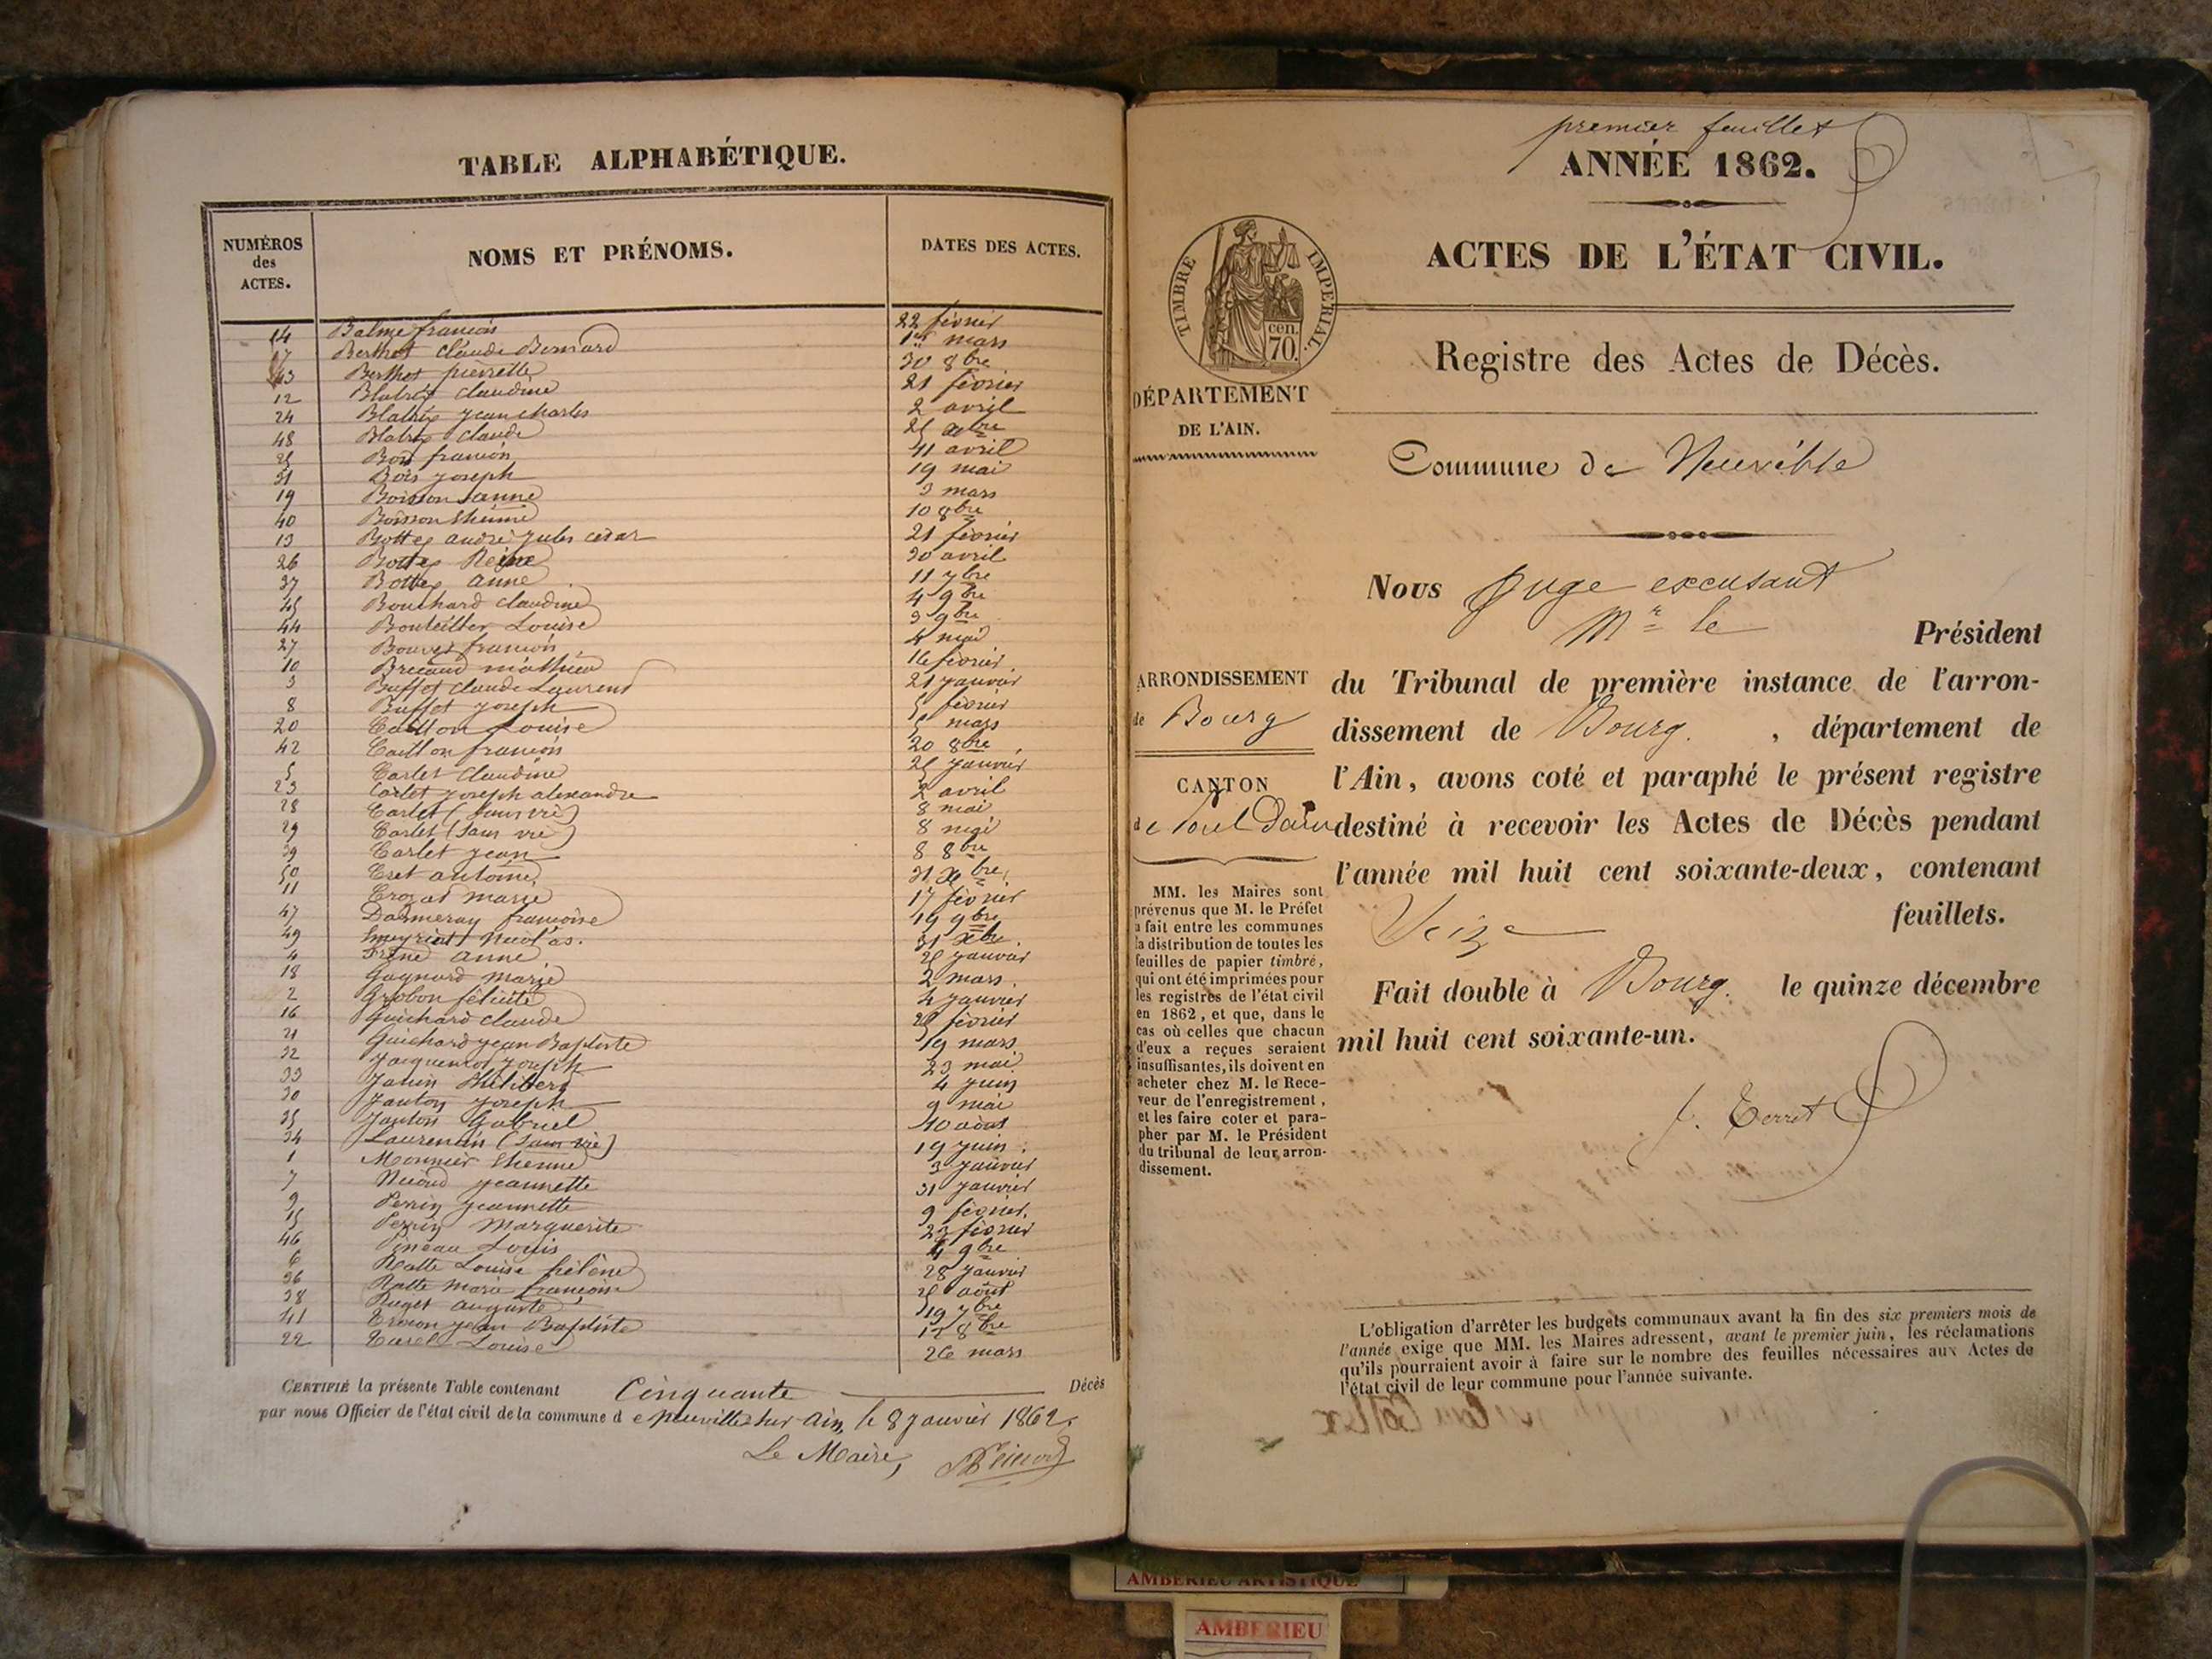 TABLE ALPHABÉTIQUE.
NUMÉROS des ACTES. NOMS ET PRÉNOMS. DATES DES ACTES.
14 Balme françois 22 février
17 Berthet Claude Bernard 1er mars
43 Berthet pierrette 30 8bre
12 Blatrix claudine 21 février
24 Blatrix jean charles 2 avril
48 Blatrix Claude 25 xbre
25 Bois françois 11 avril
31 Bois joseph 19 mai
19 Boisson anne 3 mars
40 Boisson Etienne 10 8bre
13 Bottex andré jules césar 21 février
26 Bottex Reine 30 avril
37 Bottex anne 11 7bre
45 Bouchard claudine 4 9bre
44 Bouteiller Louise 3 9bre
27 Bouvet françois 4 mai
10 mathieu 16 février
3 Buffet claude Laurent 21 janvier
8 Buffet joseph 5 février
20 Caillon Louise 5 mars
42 Caillon françois 20 8bre
5 Carlet Claudine 25 janvier
23 Carlet joseph alexandre 2 avril
28 Carlet (sans vie) 8 mai
29 Carlet (sans vie) 8 mai
39 Carlet jean 8 8bre
50 Cret antoine 31 xbre
11 Crozat marie 17 février
47 Darmeray françoise 19 9bre
49 Emyriat Nicolas. 31 xbre.
4 anne 25 janvier
18 Gagnard marie 2 mars.
2 Grobon félicité 4 janvier
16 Guichard claude 28 février
21 Guichard jean Baptiste 19 mars
32 joseph 23 mai
33 Janin Philibert 4 juin
30 Janton joseph 9 mai
35 Janton Gabriel 10 août
34 Laurencin (sans vie) 19 juin.
1 Monnier Etienne 3 janvier
7 jeannette 31 janvier
9 Perrin jeannette 9 février.
15 Perrin Marguerite 23 février
46 Pineau Louis 4 9bre
6 Ratte Louise hélène 28 janvier
36 Ratte marie françoise 25 août
38 Ruget auguste 19 7bre
41 jean Baptiste 12 8bre
22 Turel Louise 26 mars
CERTIFIÉ la présente Table contenant Cinquante Décès
par nous Officier de l'état civil de la commune de neuville sur ain, le 8 janvier 1862.
Le Maire,
premier feuillet
ANNÉE 1862.
ACTES DE L'ÉTAT CIVIL.
TIMBRE IMPÉRIAL.
cen.
70.
Registre des Actes de Décès.
DÉPARTEMENT
DE L'AIN.
Commune de Neuville
Nous juge excusant
Mr le Président
ARRONDISSEMENT
de Bourg
CANTON
de Pont Dain
du Tribunal de première instance de l'arron-
dissement de Bourg. , département de
l'Ain, avons coté et paraphé le présent registre
destiné à recevoir les Actes de Décès pendant
l'année mil huit cent soixante-deux, contenant
Seize feuillets.
Fait double à Bourg. le quinze décembre
mil huit cent soixante-un.
MM. les Maires sont
prévenus que M. le Préfet
a fait entre les communes
la distribution de toutes les
feuilles de papier timbré,
qui ont été imprimées pour
les registres de l'état civil
en 1862, et que, dans le
cas où celles que chacun
d'eux a reçues seraient
insuffisantes, ils doivent en
acheter chez M. le Rece-
veur de l'enregistrement,
et les faire coter et para-
pher par M. le Président
du tribunal de leur arron-
dissement.
L'obligation d'arrêter les budgets communaux avant la fin des six premiers mois de
l'année exige que MM. les Maires adressent, avant le premier juin, les réclamations
qu'ils pourraient avoir à faire sur le nombre des feuilles nécessaires aux Actes de
l'état civil de leur commune pour l'année suivante.
AMBERIEU ARTISTIQUE
AMBERIEU